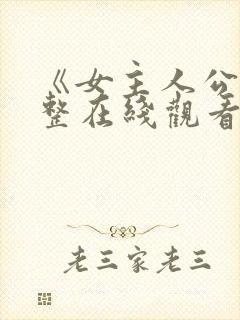 《女主人公
整在綫觀看
老三家老三